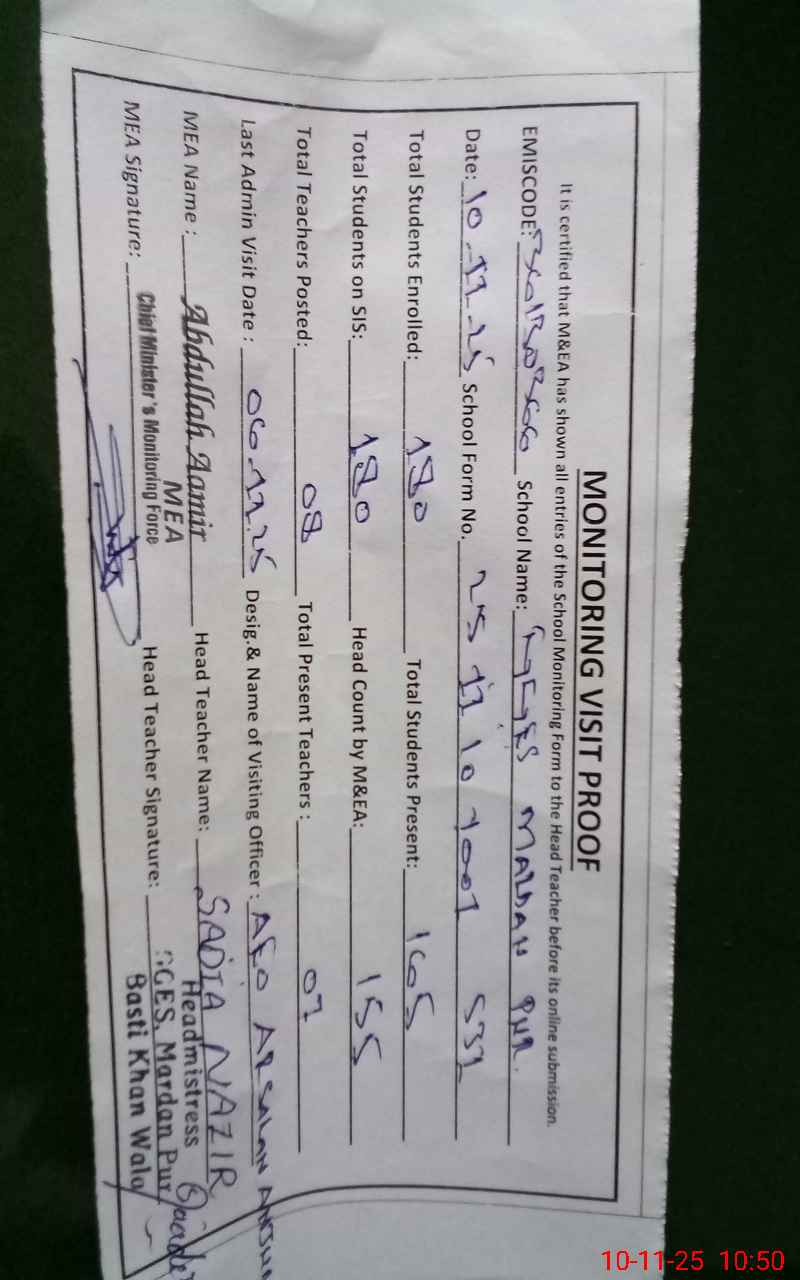 MONITORING VISIT PROOF
It is certified that M&EA has shown all entries of the School Monitoring Form to the Head Teacher before its online submission.
EMISCODE: School Name: MARDAN PUR.
Date: 10.11.25 School Form No. 25 11 10 1001 531
Total Students Enrolled: 180 Total Students Present: 165
Total Students on SIS: 180 Head Count by M&EA: 155
Total Teachers Posted: 08 Total Present Teachers : 07
Last Admin Visit Date : 06.11.25 Desig.& Name of Visiting Officer : AEO ARSALAN
MEA Name : Abdullah Aamir Head Teacher Name: SADIA NAZIR
MEA
Chief Minister's Monitoring Force
Headmistress
MEA Signature: Head Teacher Signature:
GGES, Mardan Pur
Basti Khan Wala
10-11-25 10:50